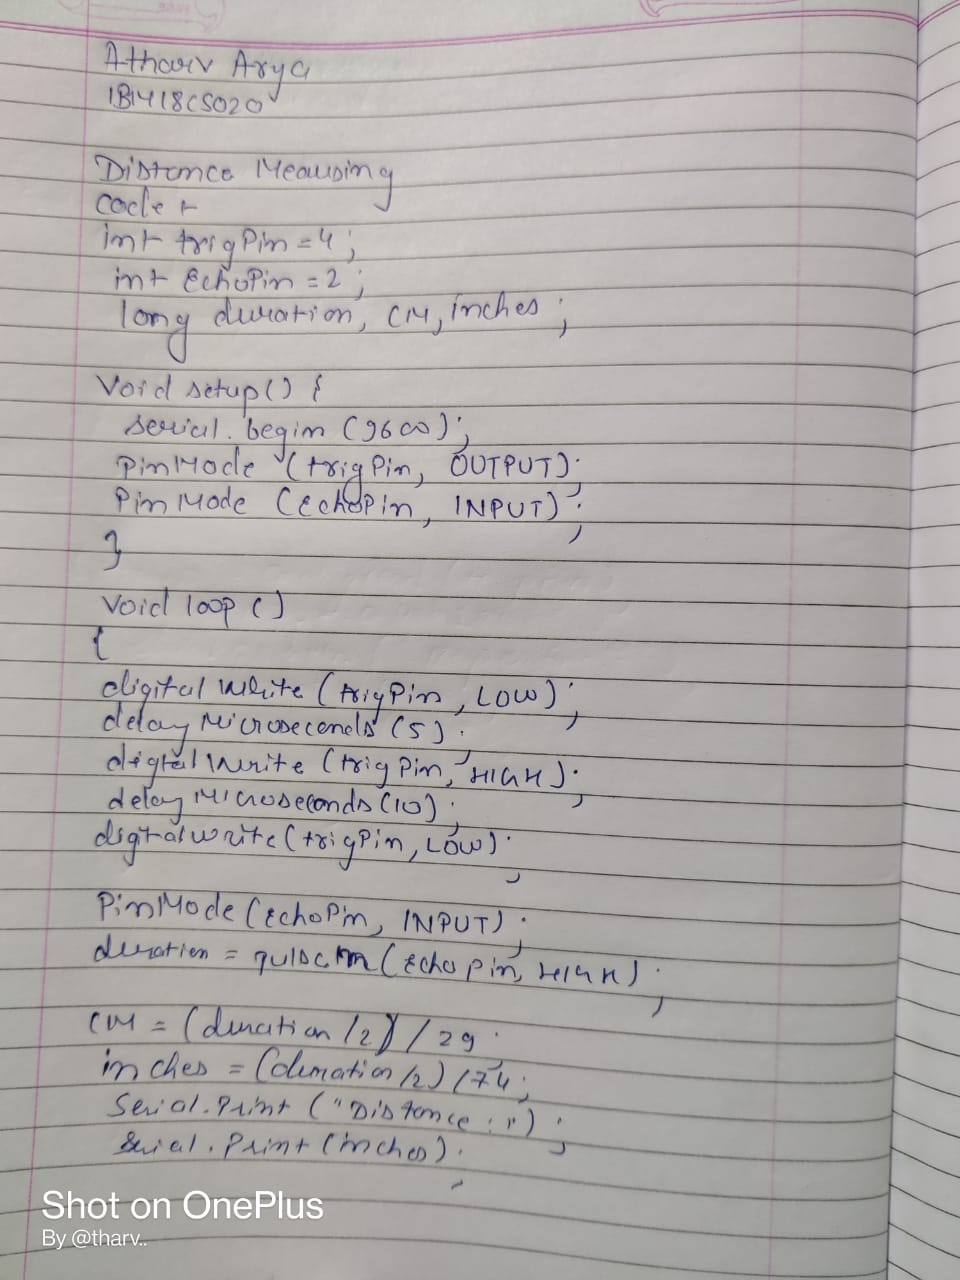 Atharv Arya
1BM18CS020
Distance Meausing
Code :-
int trigPin = 4;
int EchoPin = 2;
long duration, CM, inches;
Void setup() {
serial.begin (9600);
PinMode (trigPin, OUTPUT);
PinMode (EchoPin, INPUT);
}
Void loop ()
{
digital write (trigPin, LOW);
delay Microseconds (5);
digtal write (trig Pin, HIGH);
delay Microseconds (10);
digtalwrite (trigPin, LOW);
PinMode (EchoPin, INPUT);
duration = (Echo pin, HIGH);
CM = (duration /2) / 29;
inches = (duration /2) / 74;
Serial.Print ("Distance : ");
Serial.Print (inches);
Shot on OnePlus
By @tharv..